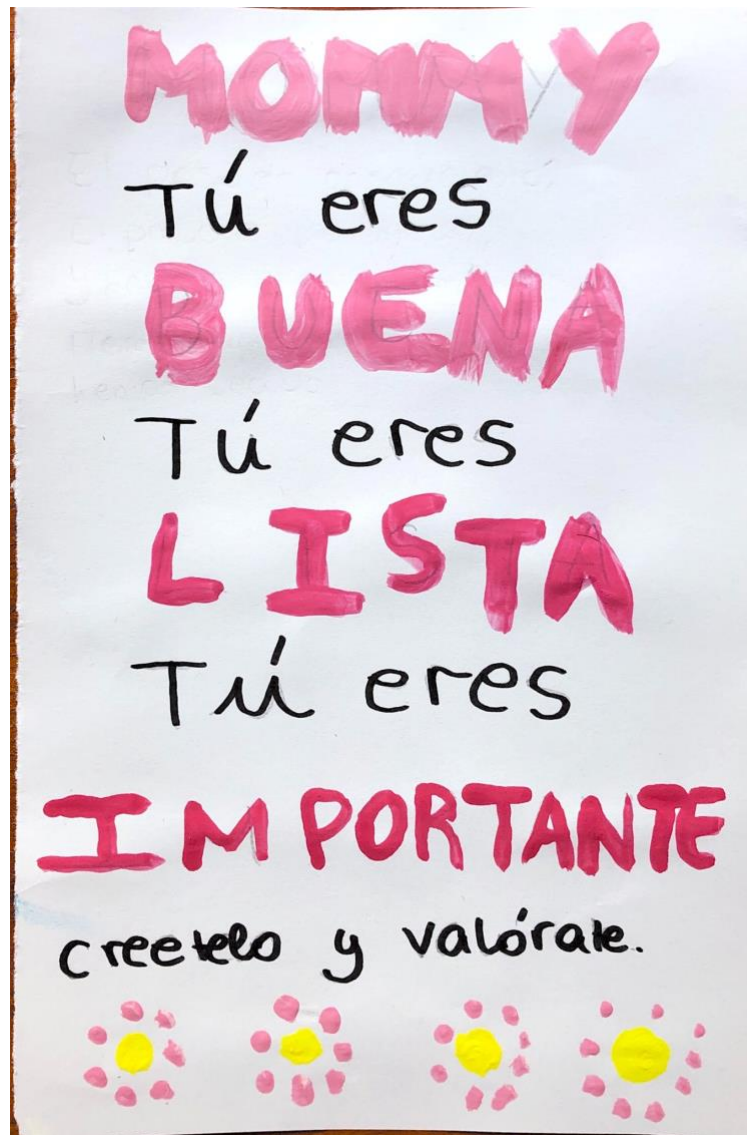 MOMMY
Tú eres
BUENA
Tú eres
LISTA
Tú eres
IMPORTANTE
creetelo y valórate.